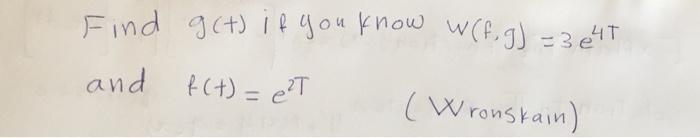 Find g(t) if you know W(f,g) = 3e^4T
and f(t) = e^2T
(Wronskain)